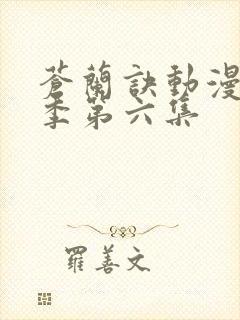 蒼蘭訣動漫
季第六集
羅善文